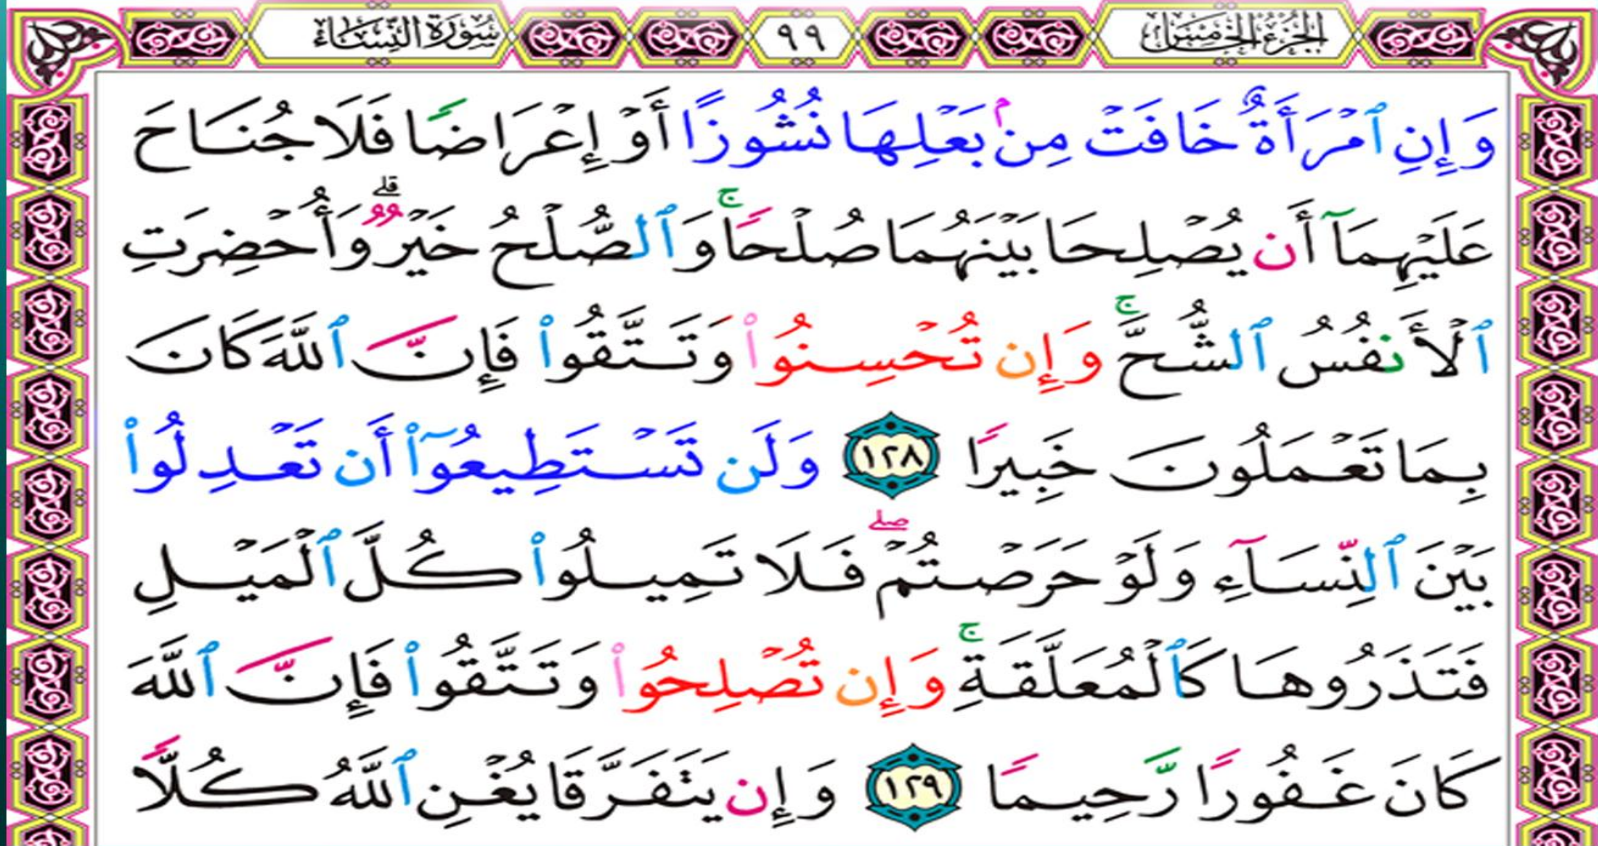 الجزء الخامس ٩٩ سورة النساء
وَإِنِ ٱمْرَأَةٌ خَافَتْ مِنۢ بَعْلِهَا نُشُوزًا أَوْ إِعْرَاضًا فَلَا جُنَاحَ
عَلَيْهِمَآ أَن يُصْلِحَا بَيْنَهُمَا صُلْحًا ۚ وَٱلصُّلْحُ خَيْرٌ ۗ وَأُحْضِرَتِ
ٱلْأَنفُسُ ٱلشُّحَّ ۚ وَإِن تُحْسِنُوا۟ وَتَتَّقُوا۟ فَإِنَّ ٱللَّهَ كَانَ
بِمَا تَعْمَلُونَ خَبِيرًا ١٢٨ وَلَن تَسْتَطِيعُوٓا۟ أَن تَعْدِلُوا۟
بَيْنَ ٱلنِّسَآءِ وَلَوْ حَرَصْتُمْ ۖ فَلَا تَمِيلُوا۟ كُلَّ ٱلْمَيْلِ
فَتَذَرُوهَا كَٱلْمُعَلَّقَةِ ۚ وَإِن تُصْلِحُوا۟ وَتَتَّقُوا۟ فَإِنَّ ٱللَّهَ
كَانَ غَفُورًا رَّحِيمًا ١٢٩ وَإِن يَتَفَرَّقَا يُغْنِ ٱللَّهُ كُلًّا